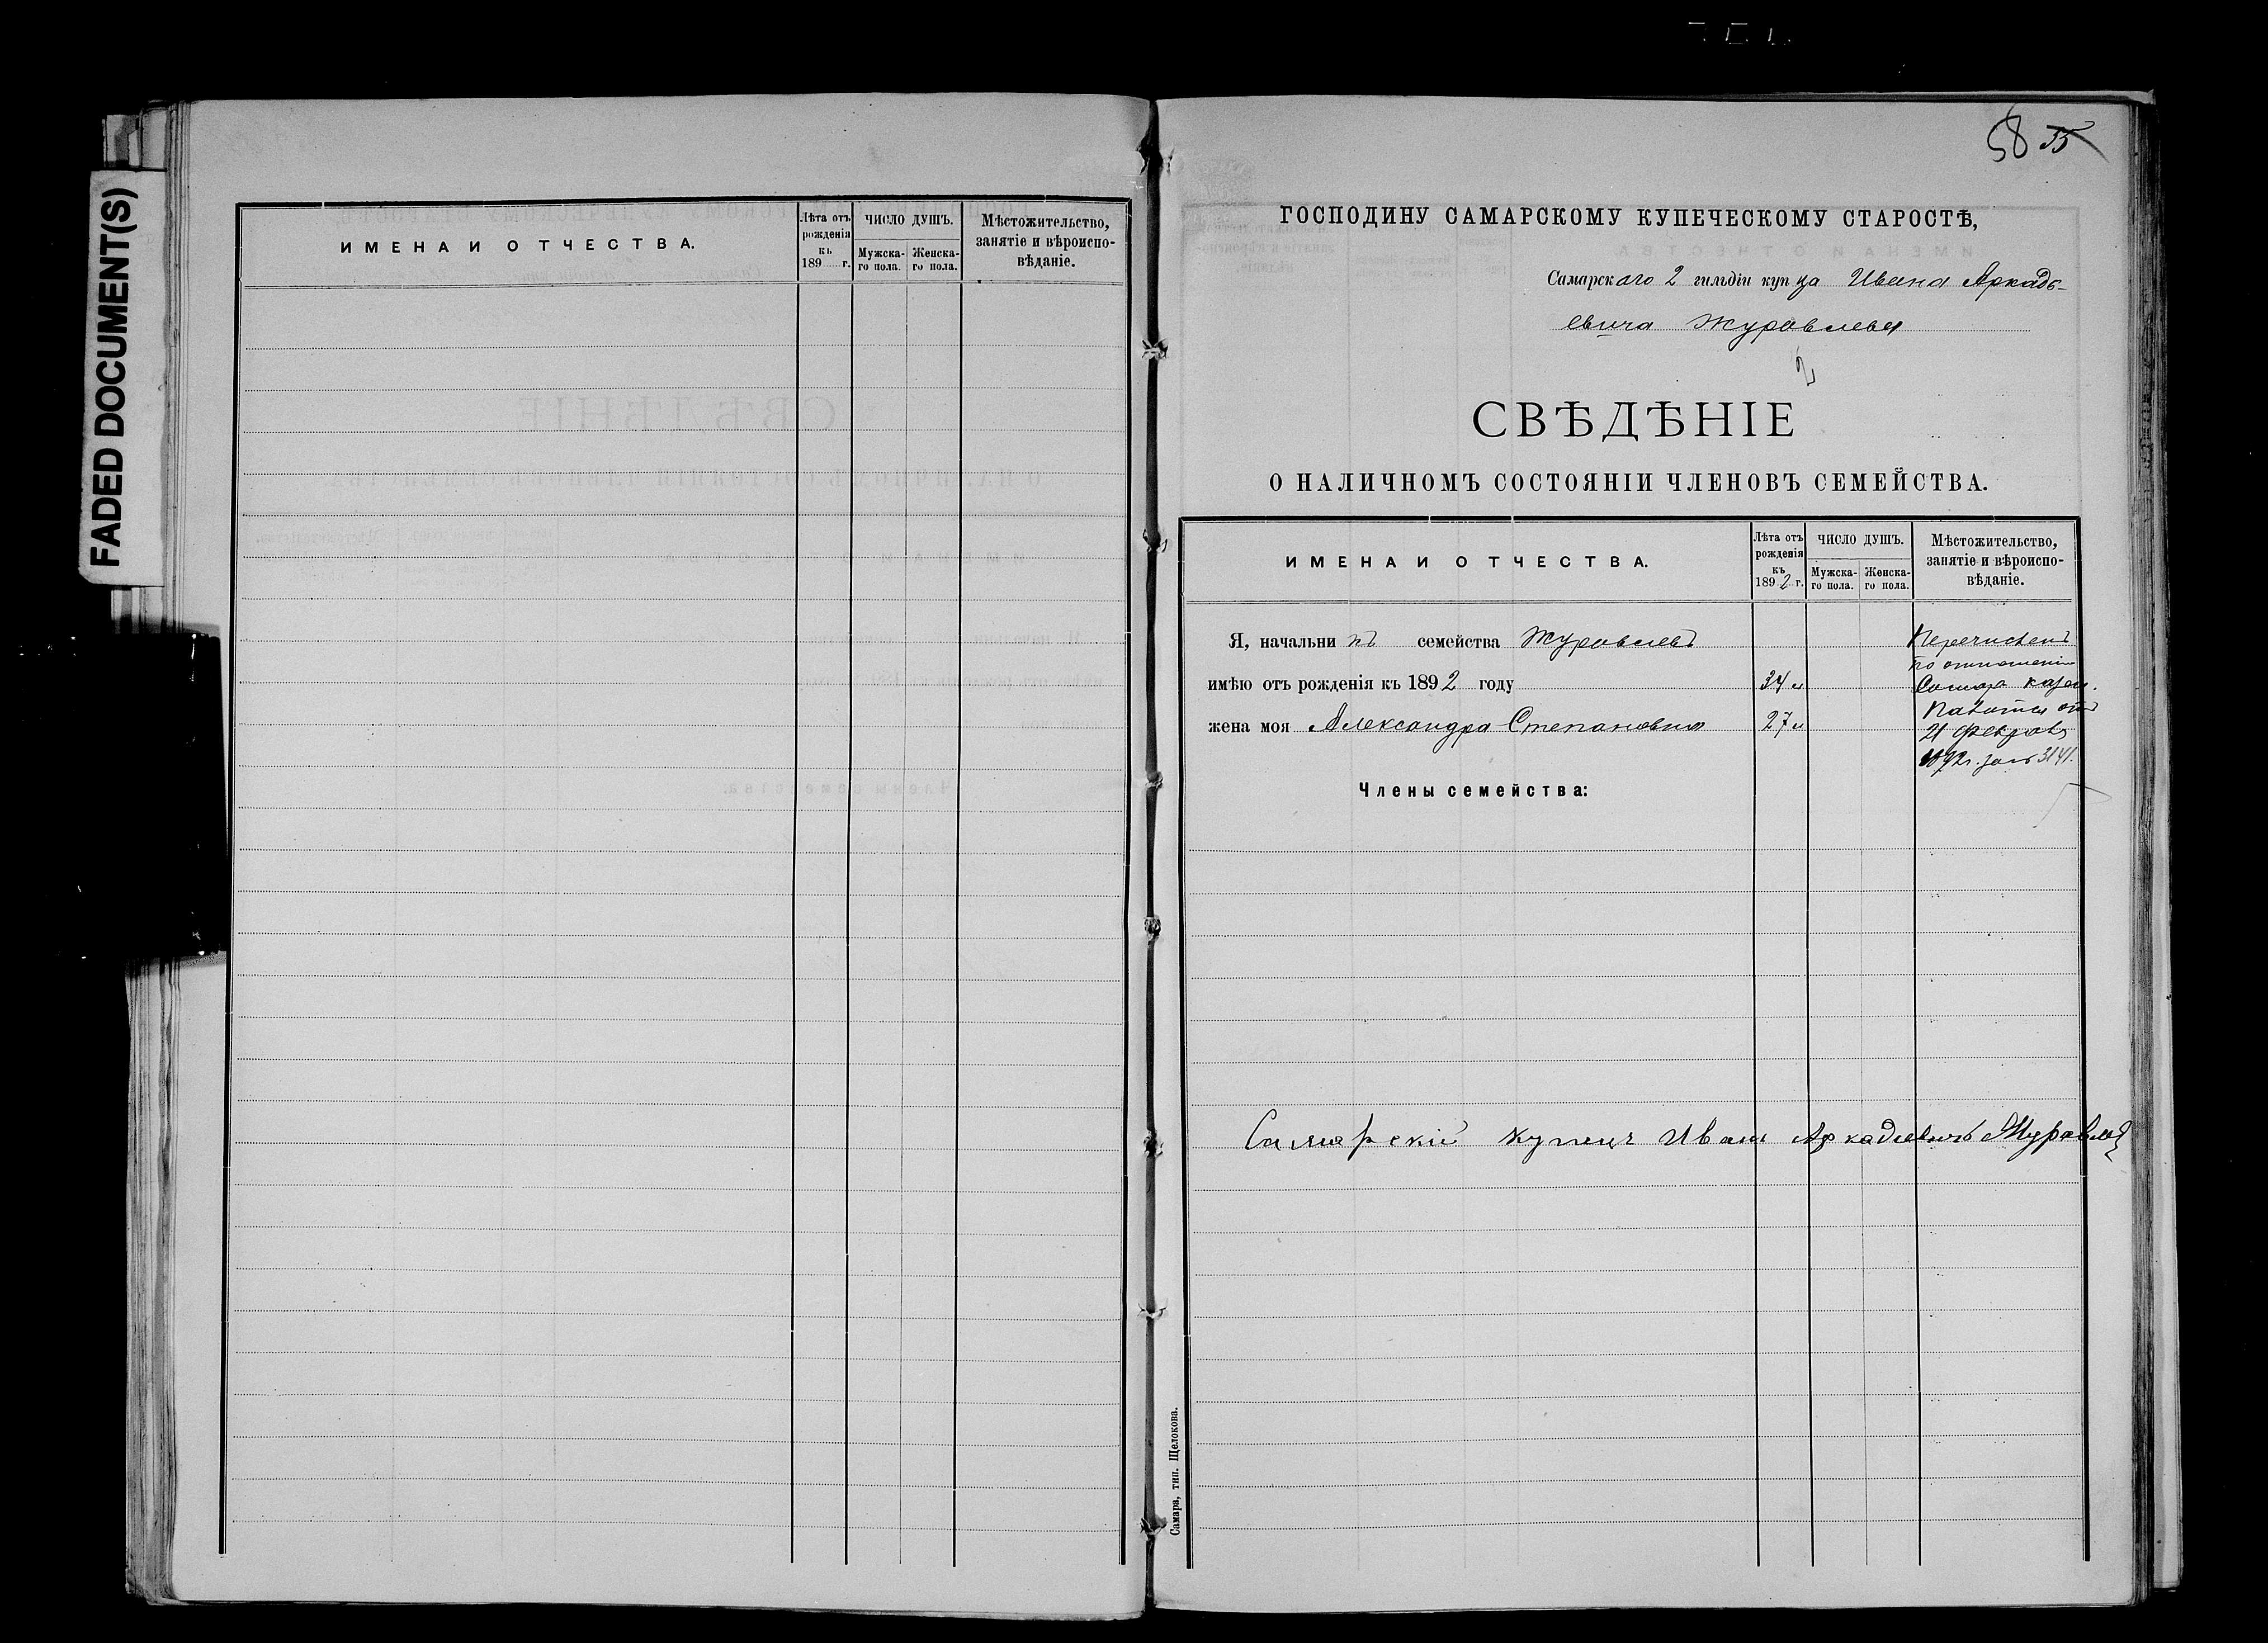 FADED DOCUMENT(S)
ИМЕНА И ОТЧЕСТВА.
Лѣта отъ
рожденія
къ
189 г.
ЧИСЛО ДУШЪ.
Мужска-
го пола.
Женска-
го пола.
Мѣстожительство,
занятіе и вѣроиспо-
вѣданіе.
58 55
ГОСПОДИНУ САМАРСКОМУ КУПЕЧЕСКОМУ СТАРОСТѢ,
Самарскаго 2 гильдіи купца Ивана Аркадь-
евича Журавлева
2
СВѢДѢНІЕ
О НАЛИЧНОМЪ СОСТОЯНІИ ЧЛЕНОВЪ СЕМЕЙСТВА.
ИМЕНА И ОТЧЕСТВА.
Лѣта отъ
рожденія
къ
1892 г.
ЧИСЛО ДУШЪ.
Мужска-
го пола.
Женска-
го пола.
Мѣстожительство,
занятіе и вѣроиспо-
вѣданіе.
Я, начальникъ семейства Журавлевъ
имѣю отъ рожденія къ 1892 году 34
жена моя Александра Степановна 27
Перечисленъ
по отношенію
Самар казен.
Палаты отъ
21 Февраля
1892 г. за № 3141.
Члены семейства:
Самарскій купецъ Иванъ Аркадіевичъ Журавлевъ
Самара, тип. Щелокова.